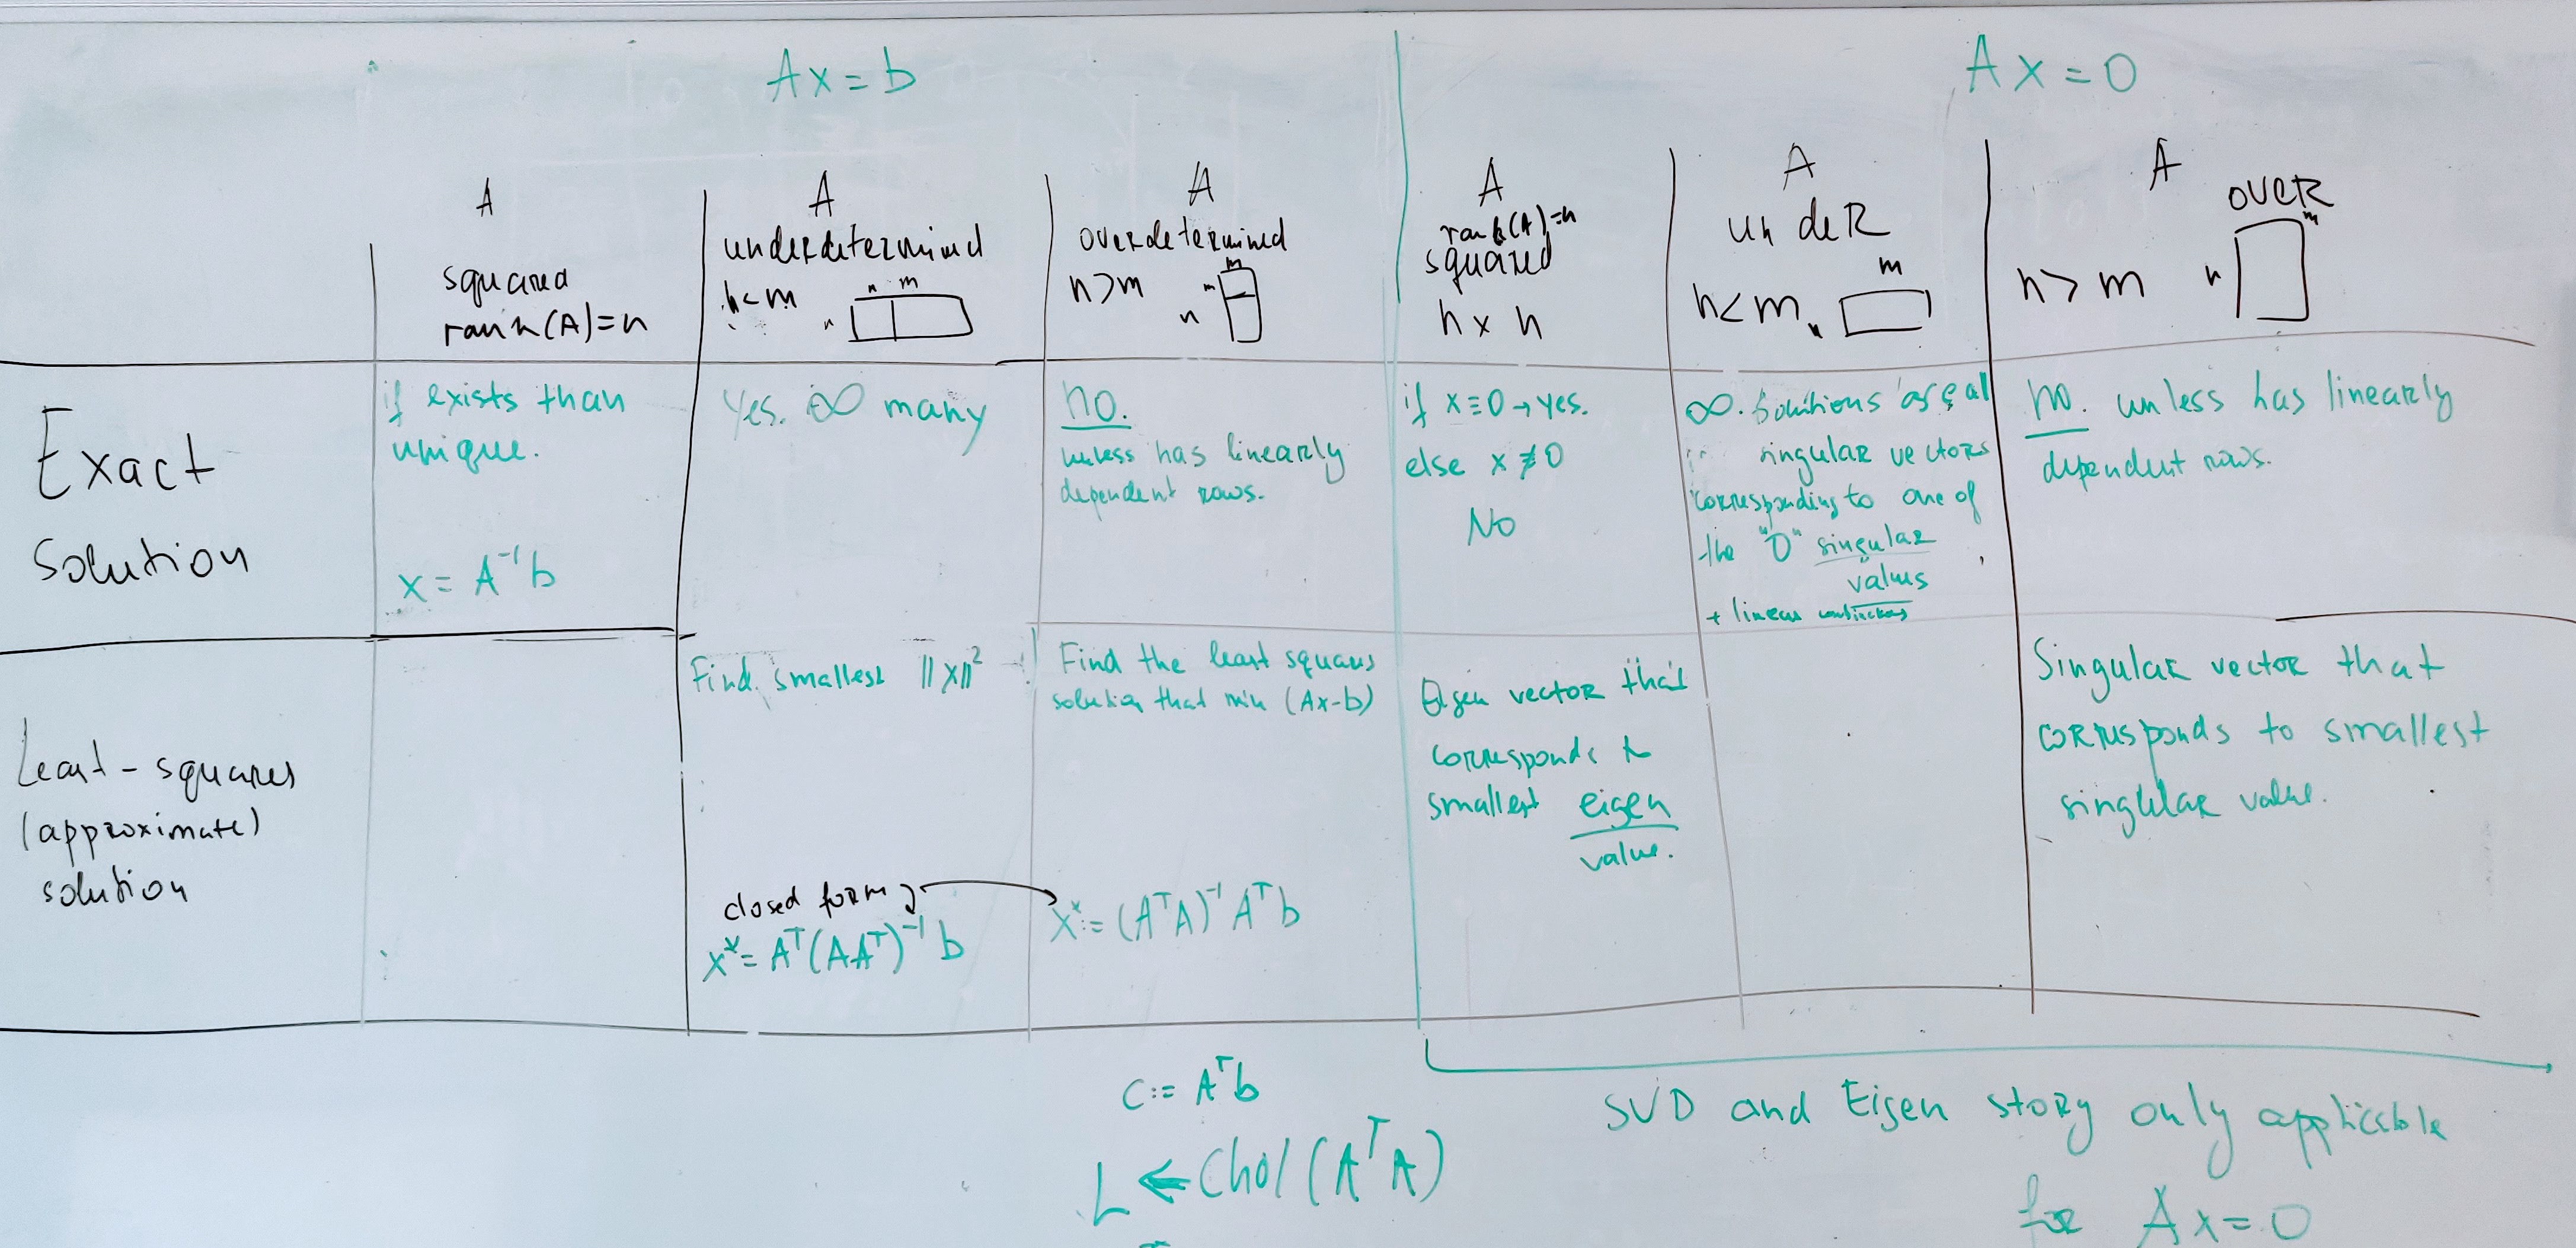 Ax = b
Ax = 0
A
squared
rank(A)=n
A
underdetermined
n<m
n m
n
A
overdetermined
n>m
m
m
n
A
rank(A)=n
squared
n x n
A
under
n<m
m
n
A
over
n>m
m
n
Exact
Solution
if exists than
unique.
x = A⁻¹b
Yes. ∞ many
no.
unless has linearly
dependent rows.
if x≡0→yes.
else x≢0
No
∞. Solutions are all
singular vectors
corresponding to one of
the "0" singular
values
+ linear combinations
no. unless has linearly
dependent rows.
Least-squares
(approximate)
solution
Find smallest ||x||²
closed form
x* = Aᵀ(AAᵀ)⁻¹b
Find the least squares
solution that min (Ax-b)
x* = (AᵀA)⁻¹Aᵀb
Eigen vector that
corresponds to
smallest eigen
value.
Singular vector that
corresponds to smallest
singular value.
C:= Aᵀb
L ⇐ Chol(AᵀA)
SVD and Eigen story only applicable
for Ax=0